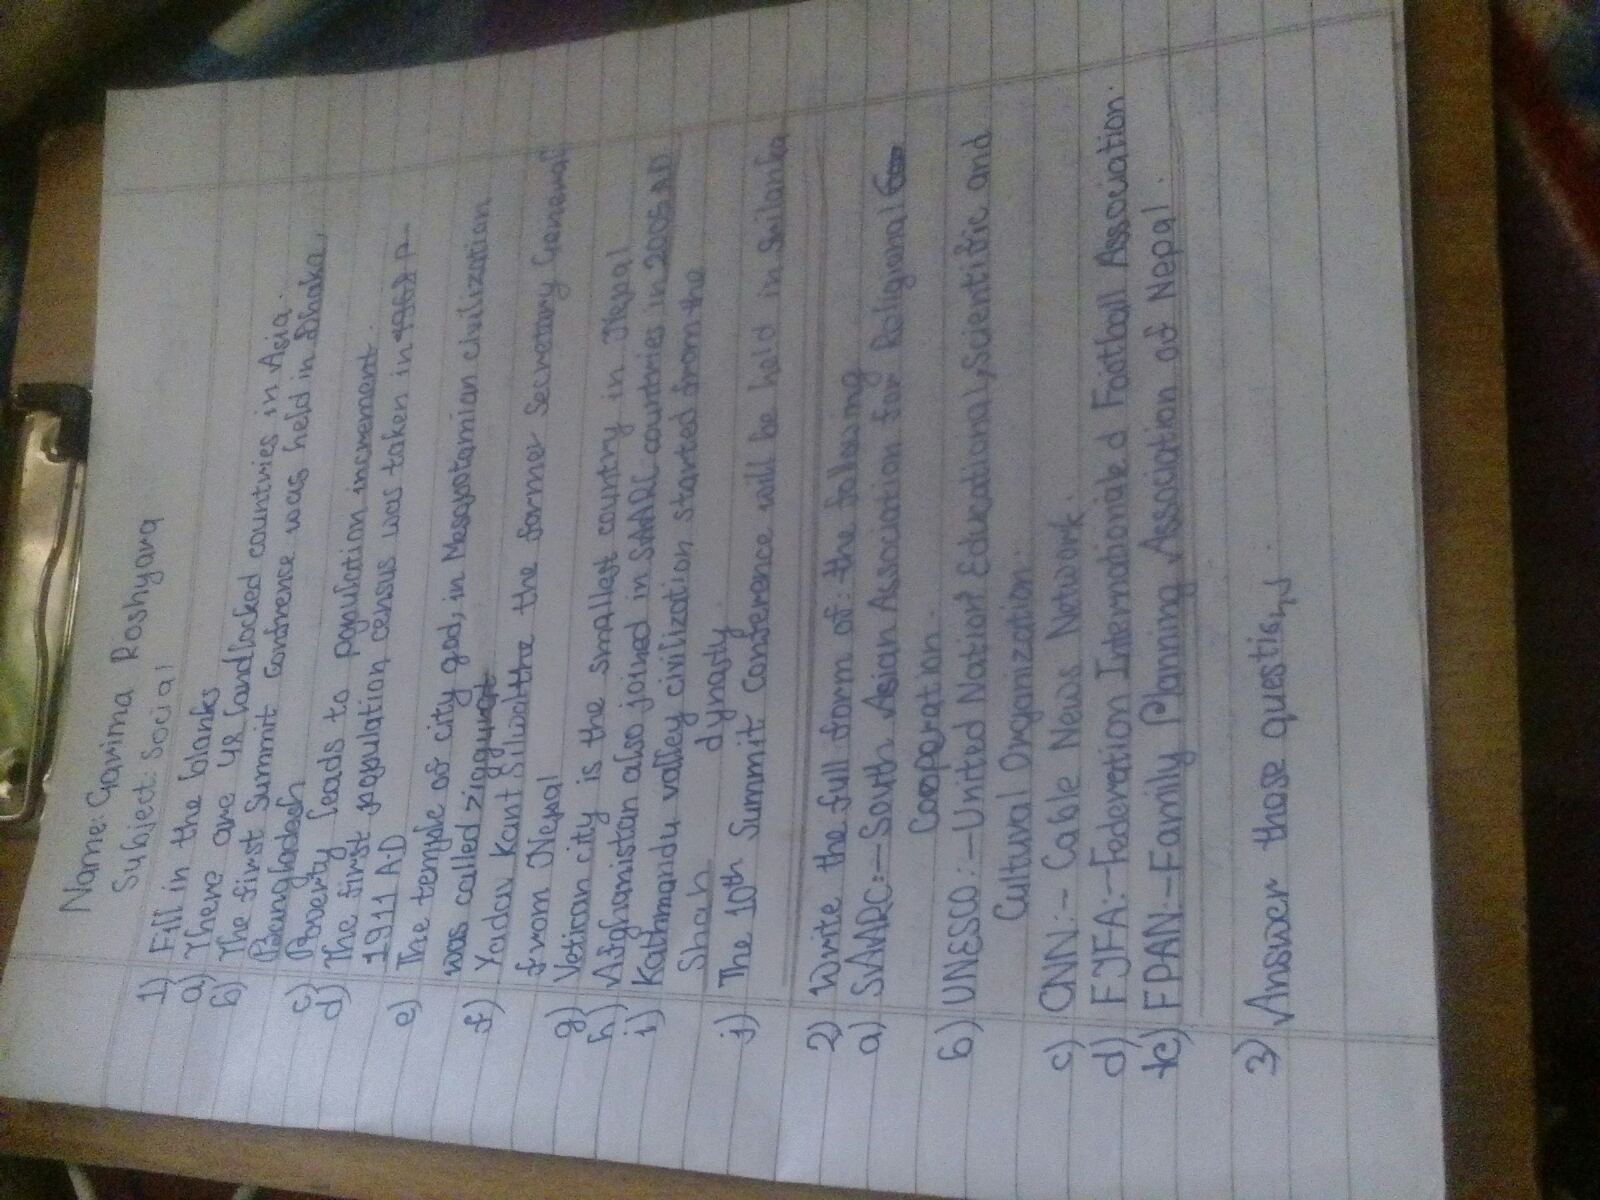 Name: Garima Roshyara
Subject: Social
1) Fill in the blanks
a) There are 42 landlocked countries in Asia.
b) The first Summit Confrence was held in Dhaka,
Bangladesh
c) Poverty leads to population increment.
d) The first population census was taken in
1911 A.D
e) The temple of city god, in Mesopotamian civilization
was called ziggurat
f) Yadav Kant Silwal the former Secretary General
from Nepal
g) Vetican city is the smallest country in Nepal
h) Afghanistan also joined in SAARC countries in 2005 AD
i) Kathmandu valley civilization started from the
Shah dynasty.
j) The 10th Summit Conference will be held in Srilanka
2) Write the full form of: the following
a) SAARC:- South Asian Association for Religional
Cooperation.
b) UNESCO:- United Nation Educational, Scientific and
Cultural Organization.
c) CNN:- Cable News Network.
d) FIFA:- Federation Internationale d Football Association.
e) FPAN:- Family Planning Association of Nepal.
3) Answer those